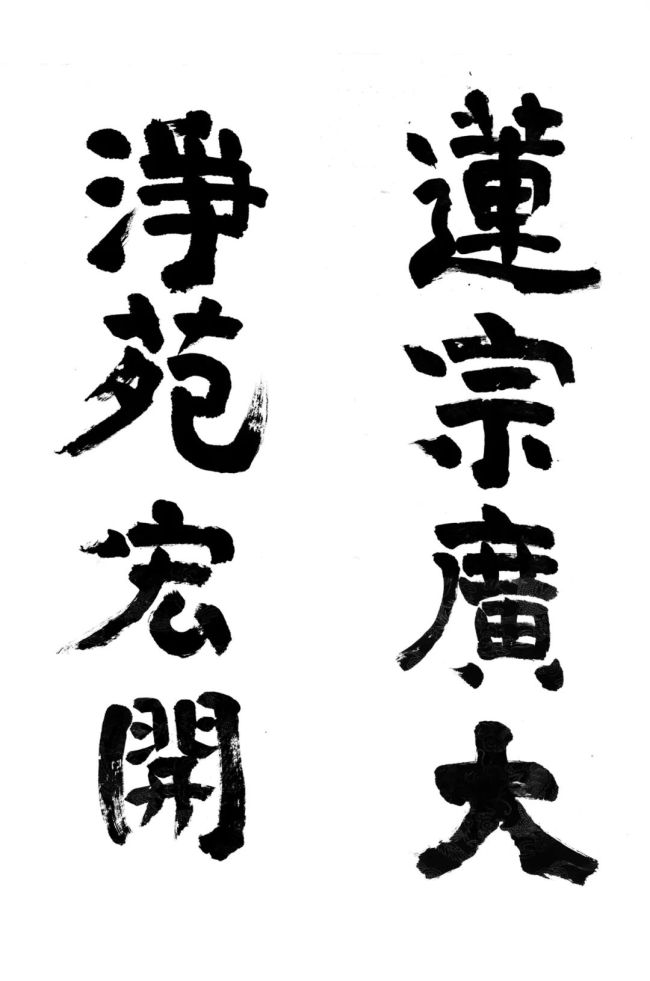 蓮宗廣大
淨苑宏開